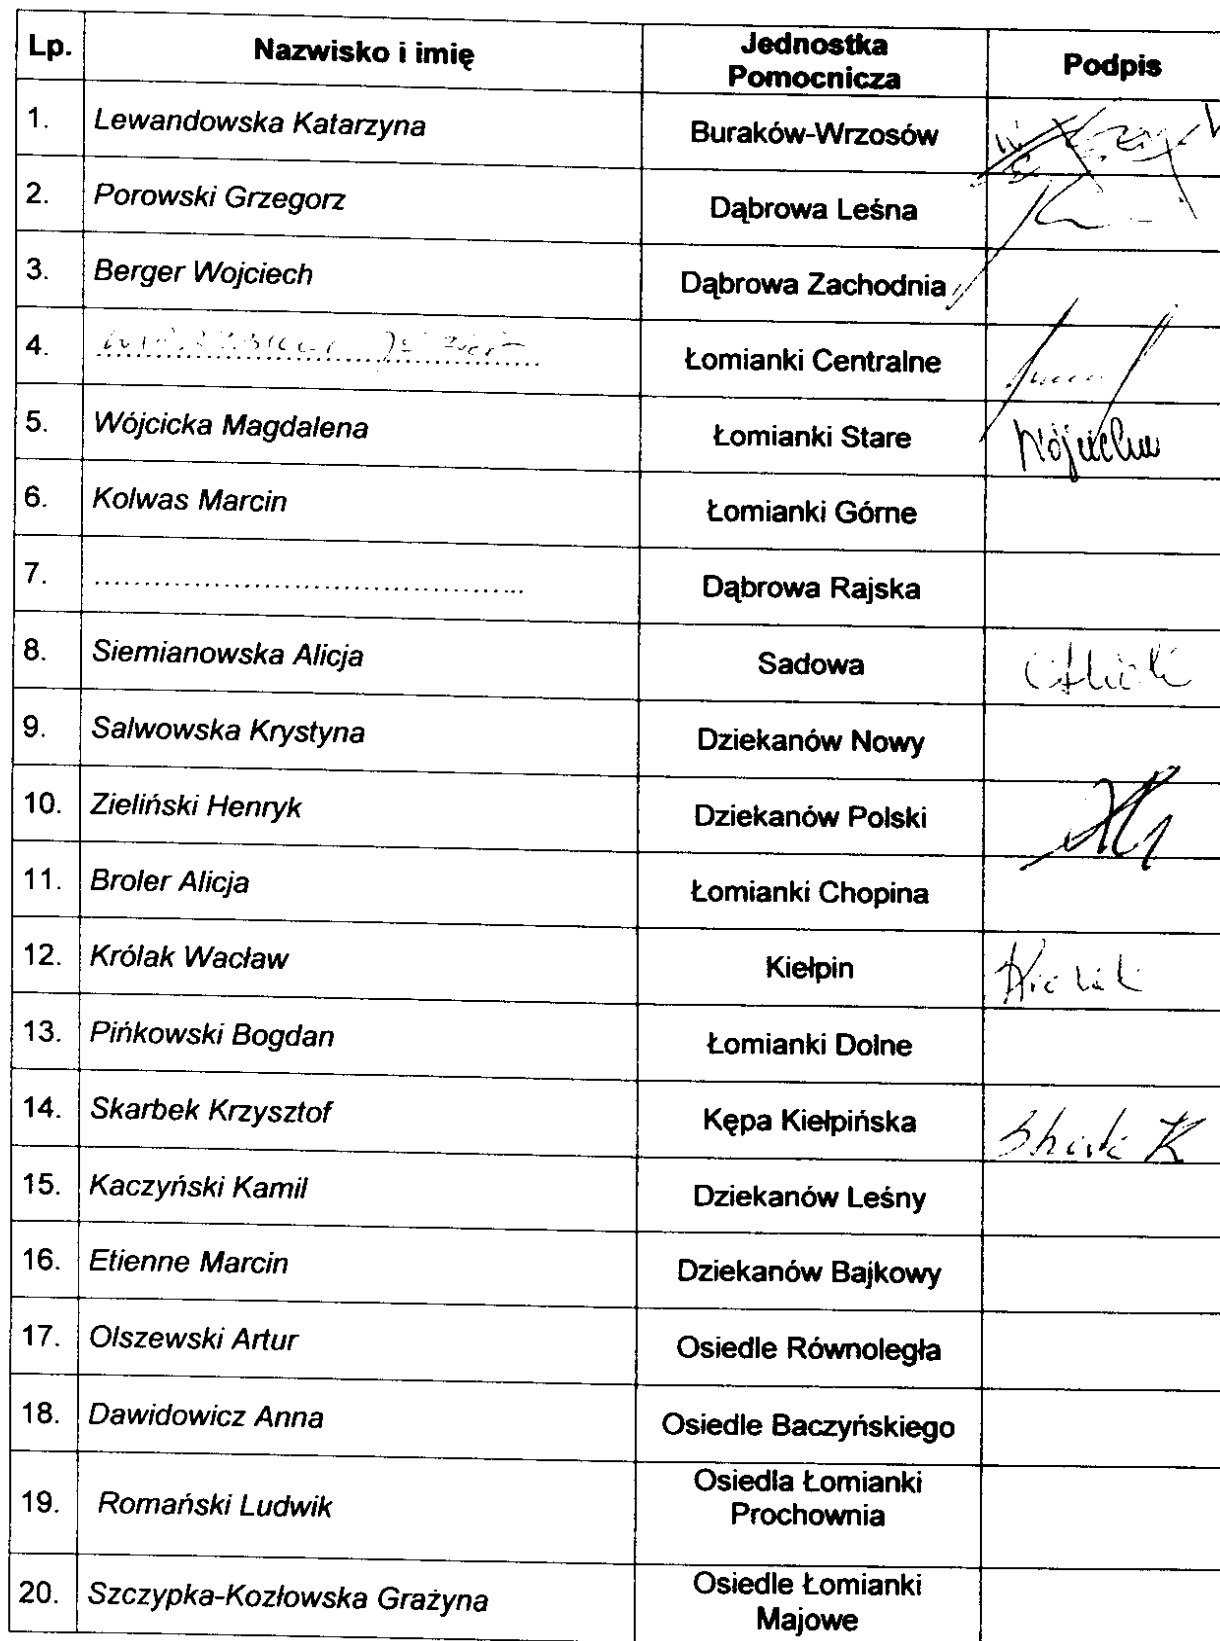 Lp. Nazwisko i imię Jednostka Pomocnicza Podpis
1. Lewandowska Katarzyna Buraków-Wrzosów
2. Porowski Grzegorz Dąbrowa Leśna
3. Berger Wojciech Dąbrowa Zachodnia
4. Łomianki Centralne
5. Wójcicka Magdalena Łomianki Stare Wójcicka
6. Kolwas Marcin Łomianki Górne
7. ............................................. Dąbrowa Rajska
8. Siemianowska Alicja Sadowa
9. Salwowska Krystyna Dziekanów Nowy
10. Zieliński Henryk Dziekanów Polski
11. Broler Alicja Łomianki Chopina
12. Królak Wacław Kiełpin
13. Pińkowski Bogdan Łomianki Dolne
14. Skarbek Krzysztof Kępa Kiełpińska
15. Kaczyński Kamil Dziekanów Leśny
16. Etienne Marcin Dziekanów Bajkowy
17. Olszewski Artur Osiedle Równoległa
18. Dawidowicz Anna Osiedle Baczyńskiego
19. Romański Ludwik Osiedla Łomianki Prochownia
20. Szczypka-Kozłowska Grażyna Osiedle Łomianki Majowe